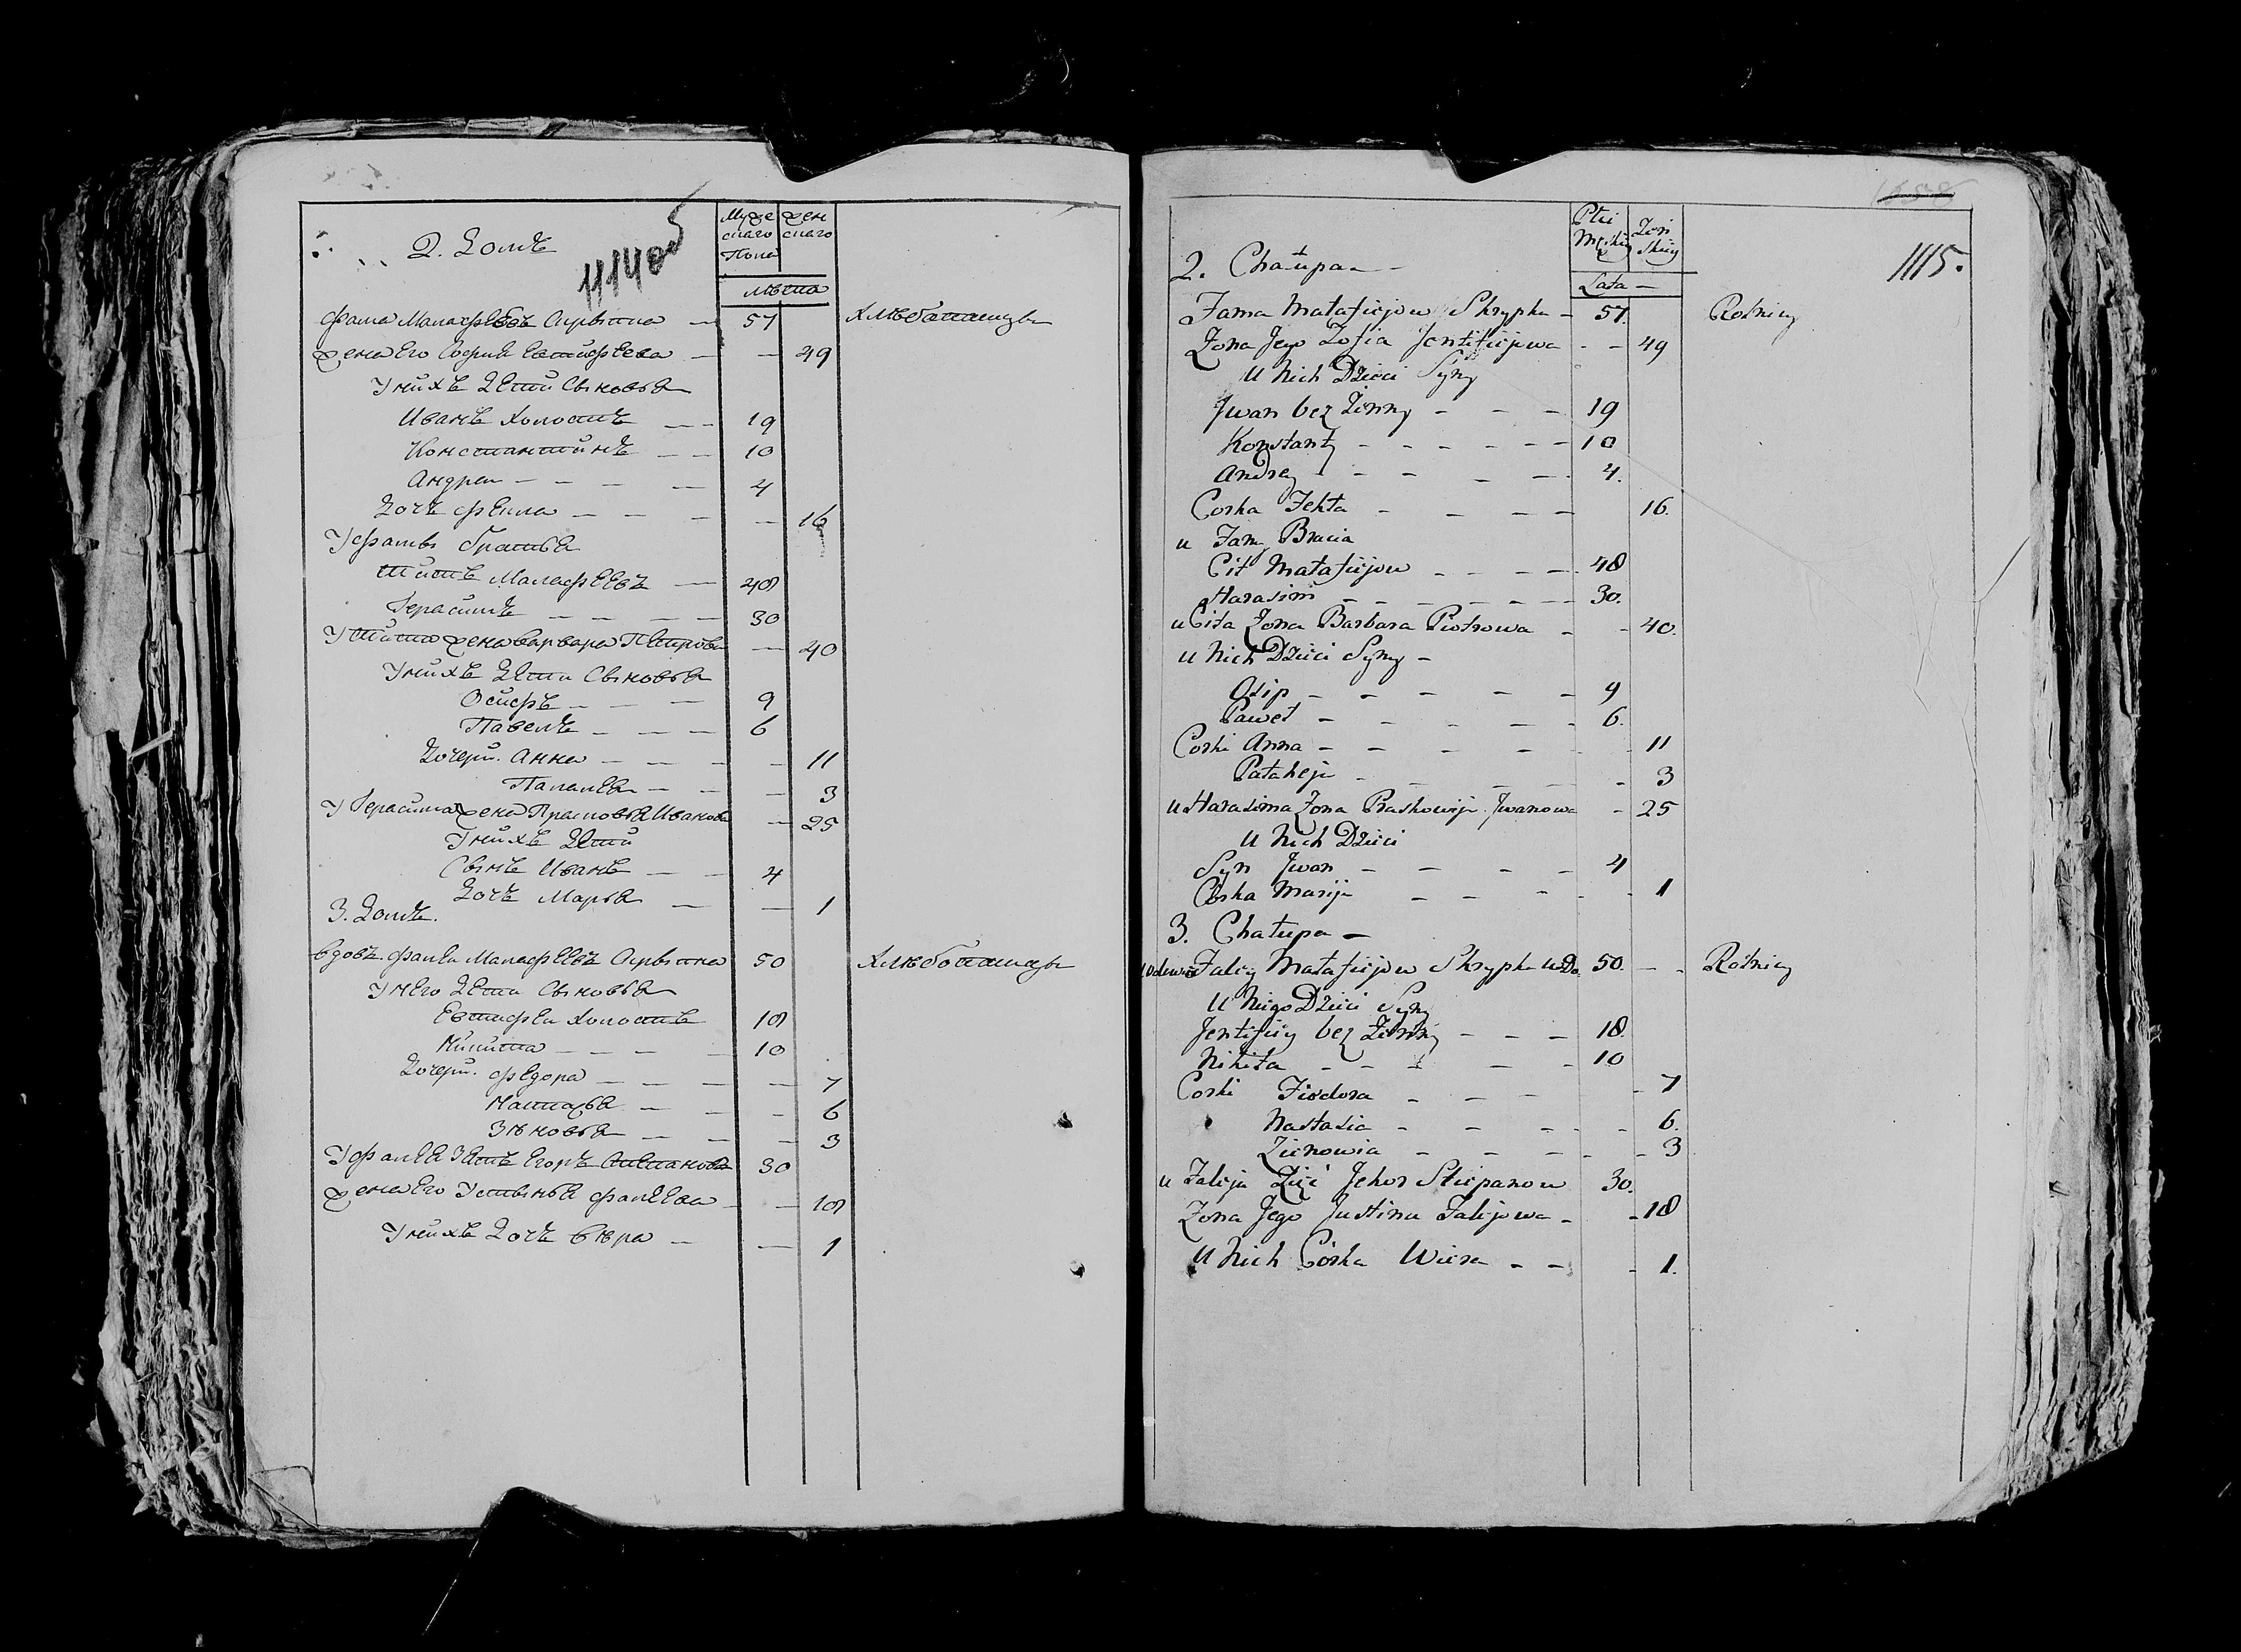 2. Домъ
1114 об
Муже скаго Пола
Жен скаго
Лѣта
Фама Малафѣевъ Скрыпка — 57 Хлѣбопашецъ
Жена Его София Евтифѣева — — 49
У нихъ Дѣти Сыновья
Иванъ Холостъ — — 19
Константинъ — — 10
Андрей — — — — 4
Дочь Фекла — — — — 16
У Фамы братья
Титъ Малафѣевъ — 48
Герасимъ — — — — 30
У Тита жена Варвара Петрова — 40
У нихъ Дѣти Сыновья
Осифъ — — — 9
Павелъ — — — 6
Дочери. Анна — — — — 11
Палагѣя — — — 3
У Герасима жена Прасковья Иванова — 25
У нихъ Дѣти
Сынъ Иванъ — — 4
Дочь Марья — — 1
3. Домъ.
Вдовъ. Фалей Малафѣевъ Скрыпка 50 Хлѣбопашецъ
У него Дѣти Сыновья
Евтифей Холостъ 18
Никита — — — — 10
Дочери. Федора — — — — 7
Настасья — — 6
Зѣновья — — — 3
У Фалѣя Зять Егоръ Степановъ 30
Жена Его Устинья Фалѣева — — 18
У нихъ Дочь Вѣра — — 1
1115.
Płci Męskiey
Żeń skiey
Lata —
2. Chałupa —
Fama Małafiejow Skrypka — 57. Rolnicy
Żona Jego Zofia Jentifiejewa - - 49
U Nich Dzieci Syny
Jwan bez Żenny - - - 19
Konstanty - - - - - - 10
Andrey - - - - - 4.
Corka Fekta - - - - 16.
u Famy Bracia
Cit Małafiejow - - - - 48
Harasim - - - - - - 30.
u Cita Żona Barbara Piotrowa - - 40.
u Nich Dzieci Syny -
Osip - - - - - 9
Paweł - - - - - - 6.
Corki Anna - - - - - - 11
Pałaheja - - - - - 3
u Harasima Żona Praskowija Jwanowa - 25
U Nich Dzieci
Syn Jwan - - - - 4
Córka Marija - - - - - 1
3. Chałupa —
Faley Małafiejow Skrypka 50. - - Rolnicy
U Niego Dzieci Syny
Jentifiey bez Żenny - - - 18.
Nikita - - - - - 10
Corki Fiodora - - - - 7
Nastasia - - - - - 6.
Zienowia - - - - - - 3
u Faleja Zięć Jehor Stiepanow 30.
Żona Jego Justina Falejowa - - 18
U Nich Córka Wiera - - - 1.